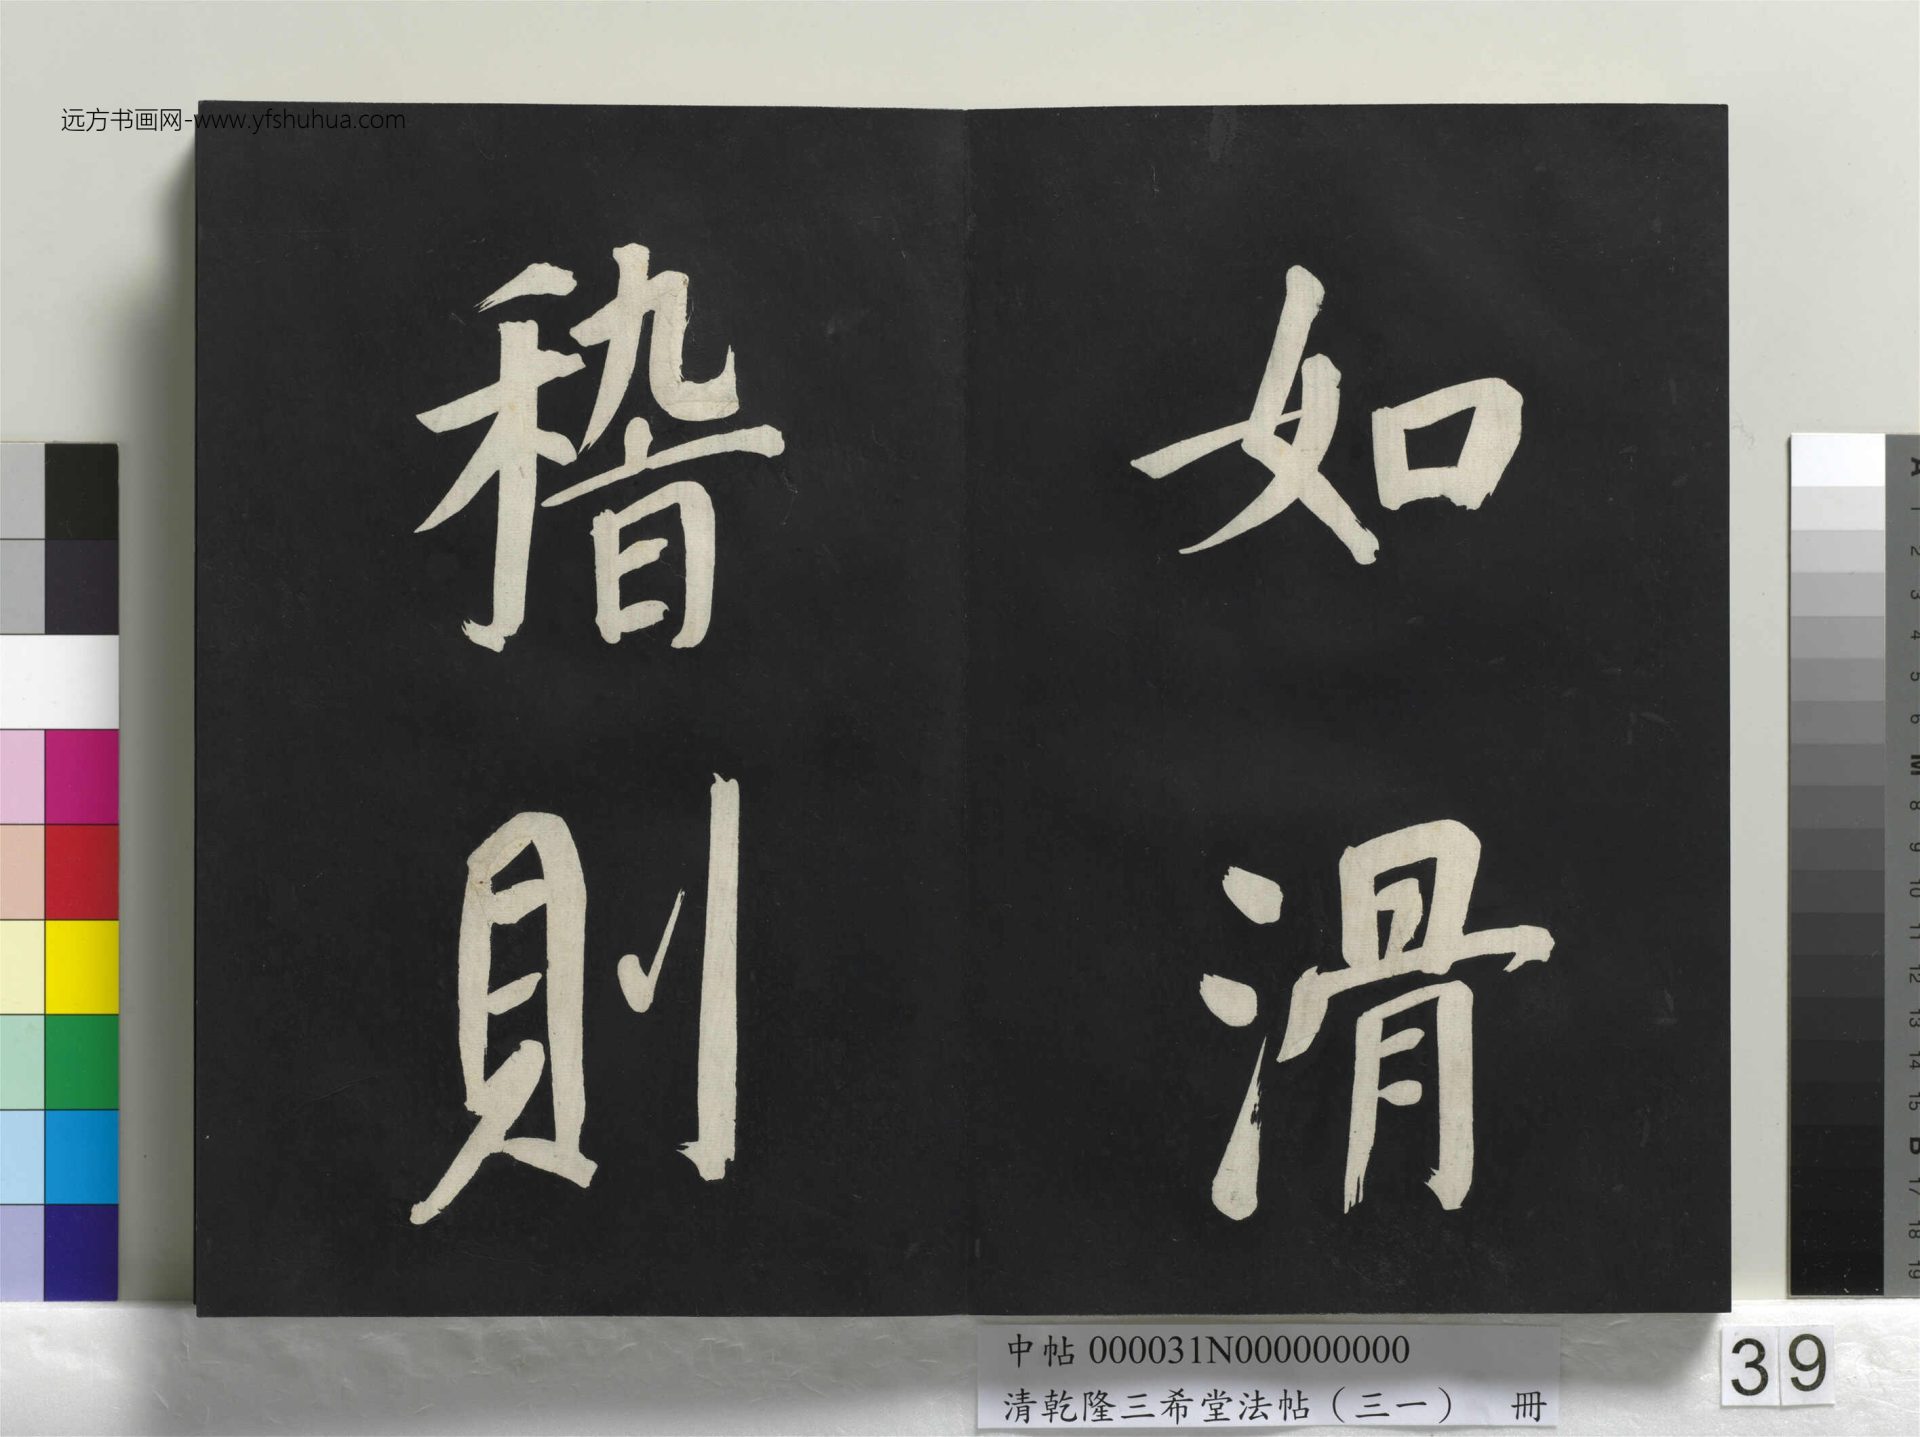 远方书画网-www.yfshuhua.com
如滑
稽則
中帖 000031N000000000
清乾隆三希堂法帖（三一） 冊
39
A
1
2
3
4
5
6
M
8
9
10
11
12
13
14
15
B
17
18
19